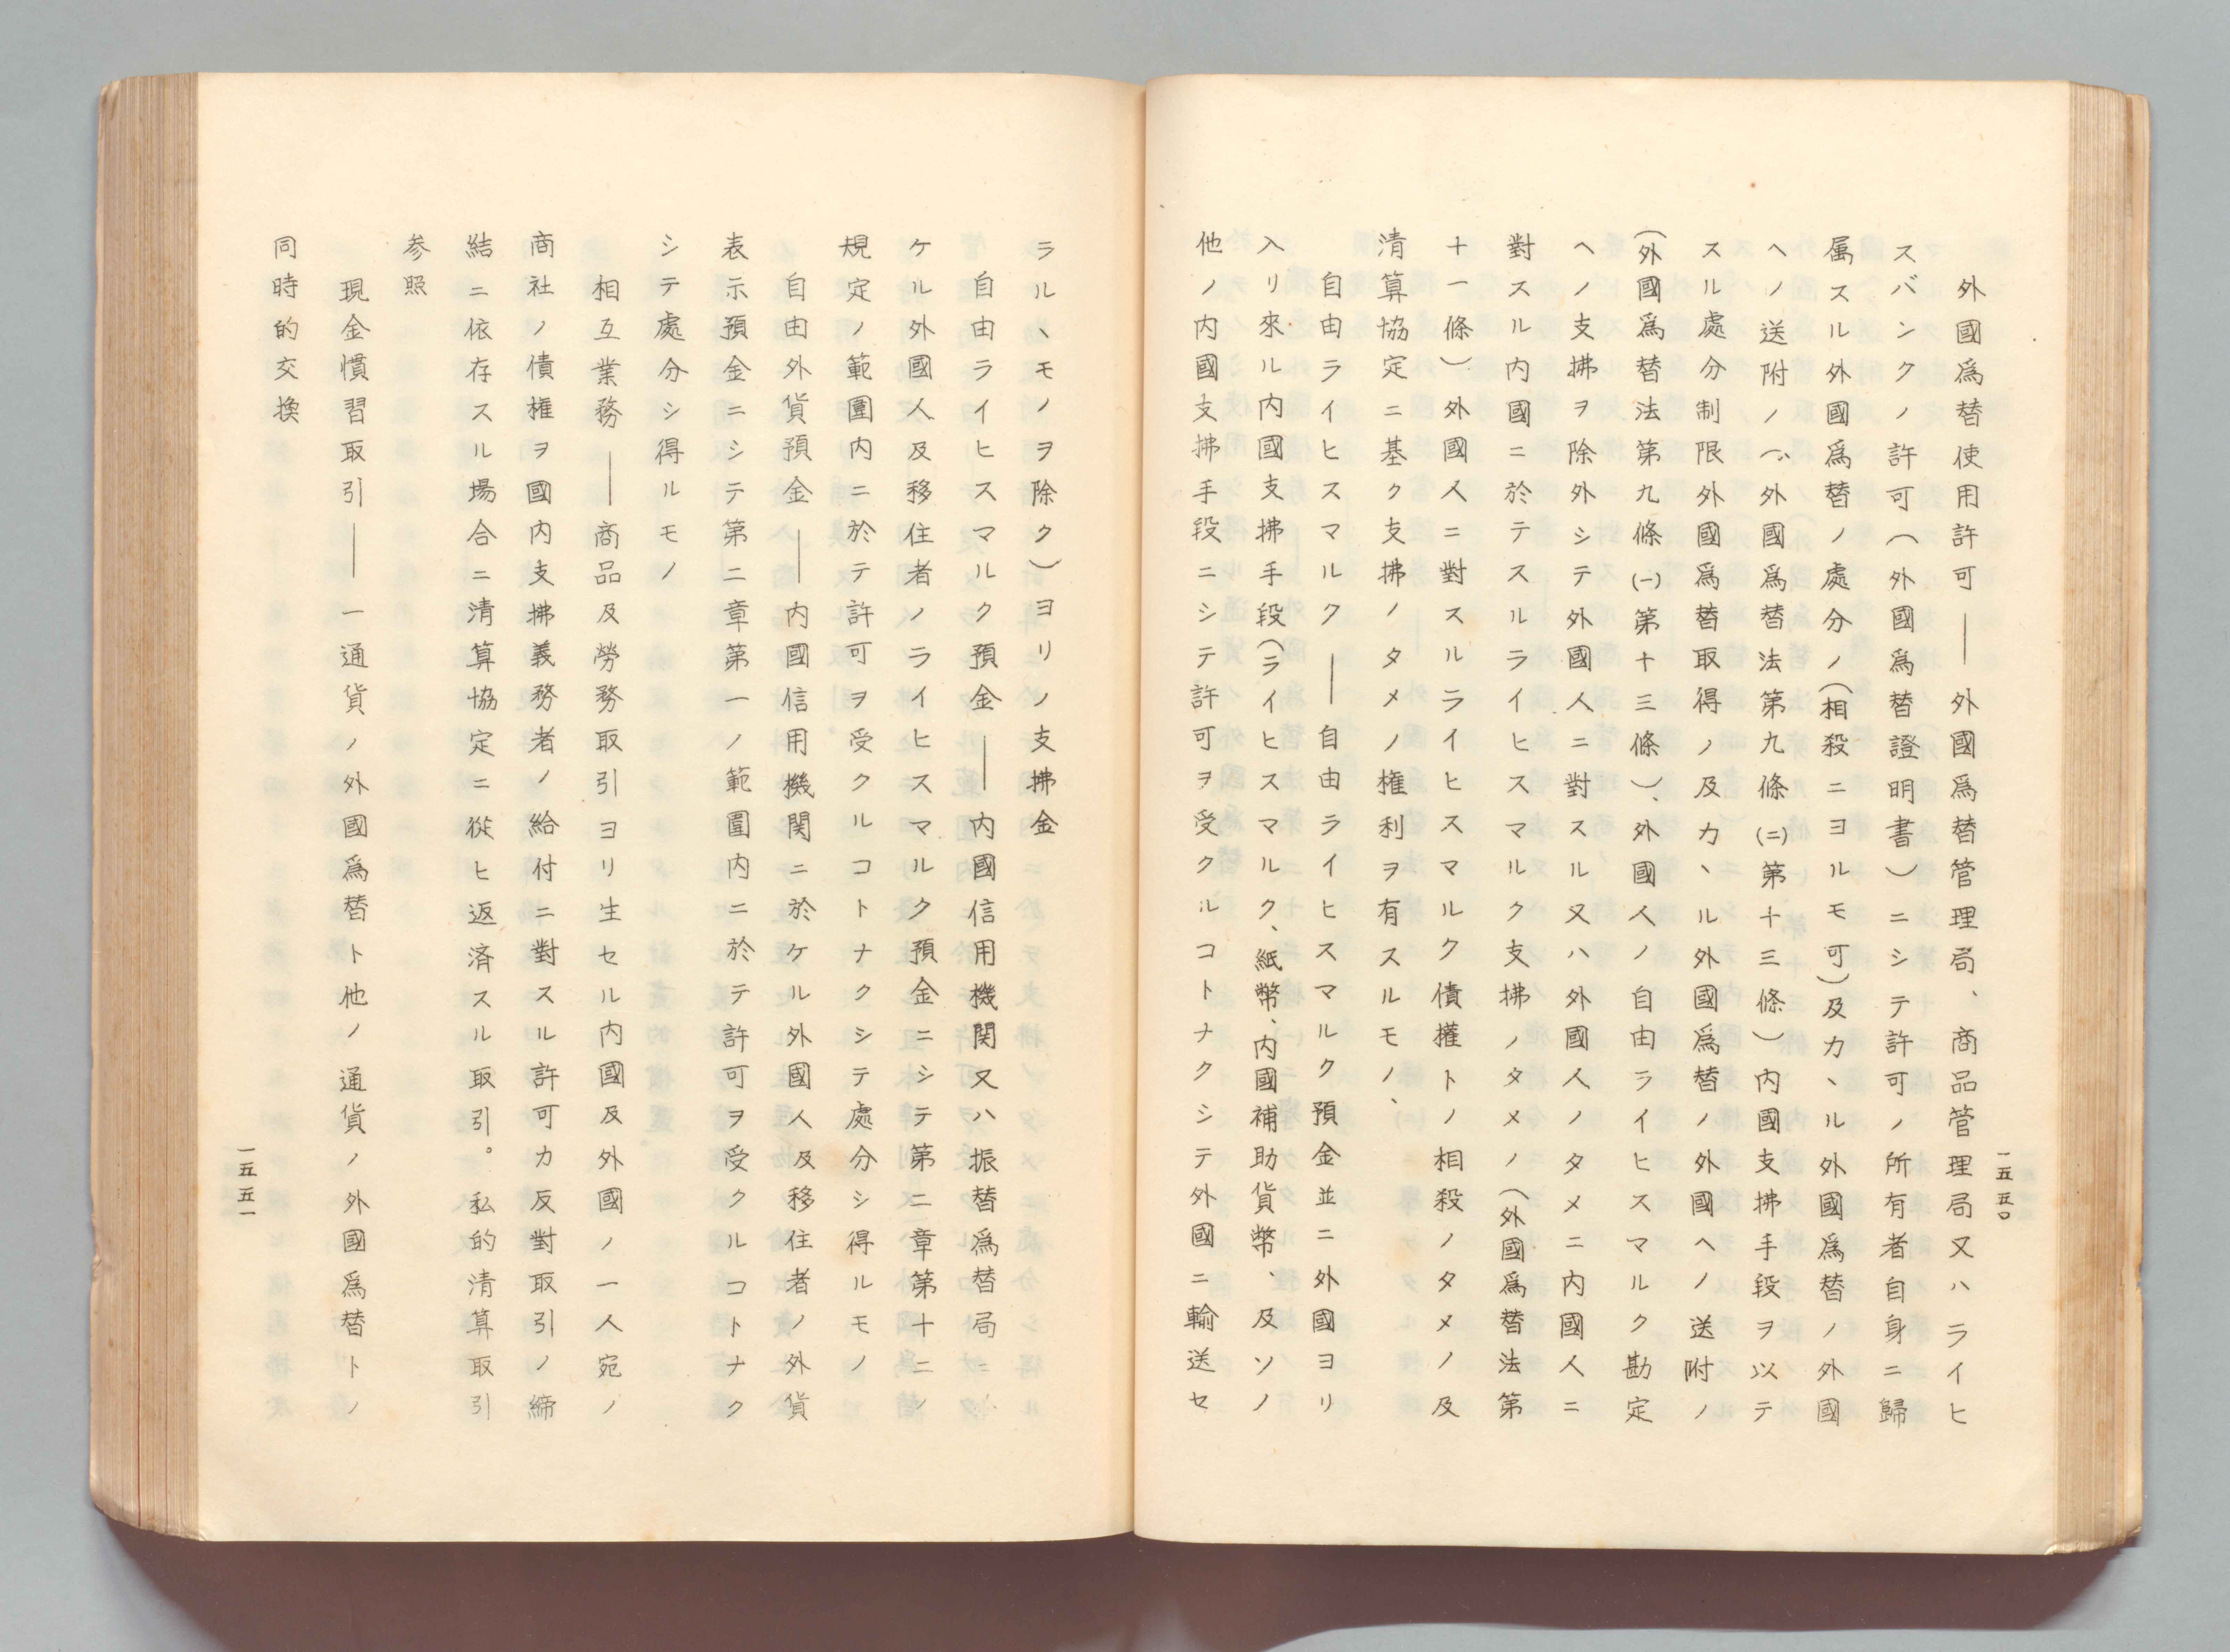 一五五〇
外國爲替使用許可――外國爲替管理局、商品管理局又ハライヒ
スバンクノ許可（外國爲替證明書）ニシテ許可ノ所有者自身ニ歸
属スル外國爲替ノ處分ノ（相殺ニヨルモ可）及カヽル外國爲替ノ外國
ヘノ送附ノ（外國爲替法第九條㈡第十三條）内國支拂手段ヲ以テ
スル處分制限外國爲替取得ノ及カヽル外國爲替ノ外國ヘノ送附ノ
（外國爲替法第九條㈠第十三條）、外國人ノ自由ライヒスマルク勘定
ヘノ支拂ヲ除外シテ外國人ニ對スル又ハ外國人ノタメニ内國人ニ
對スル内國ニ於テスルライヒスマルク支拂ノタメノ（外國爲替法第
十一條）外國人ニ對スルライヒスマルク債權トノ相殺ノタメノ及
清算協定ニ基ク支拂ノタメノ権利ヲ有スルモノ、
自由ライヒスマルク――自由ライヒスマルク預金並ニ外國ヨリ
入リ來ル内國支拂手段（ライヒスマルク、紙幣、内國補助貨幣、及ソノ
他ノ内國支拂手段ニシテ許可ヲ受クルコトナクシテ外國ニ輸送セ
ラルヽモノヲ除ク）ヨリノ支拂金
自由ライヒスマルク預金――内國信用機関又ハ振替爲替局ニ於
ケル外國人及移住者ノライヒスマルク預金ニシテ第二章第十ニシ
規定ノ範圍内ニ於テ許可ヲ受クルコトナクシテ處分シ得ルモノ
自由外貨預金――内國信用機関ニ於ケル外國人及移住者ノ外貨
表示預金ニシテ第二章第一ノ範圍内ニ於テ許可ヲ受クルコトナク
シテ處分シ得ルモノ
相互業務――商品及勞務取引ヨリ生セル内國及外國ノ一人宛ノ
商社ノ債権ヲ國内支拂義務者ノ給付ニ對スル許可カ反對取引ノ締
結ニ依存スル場合ニ清算協定ニ從ヒ返済スル取引。私的清算取引
参照
現金慣習取引――一通貨ノ外國爲替ト他ノ通貨ノ外國爲替トノ
同時的交換
一五五一